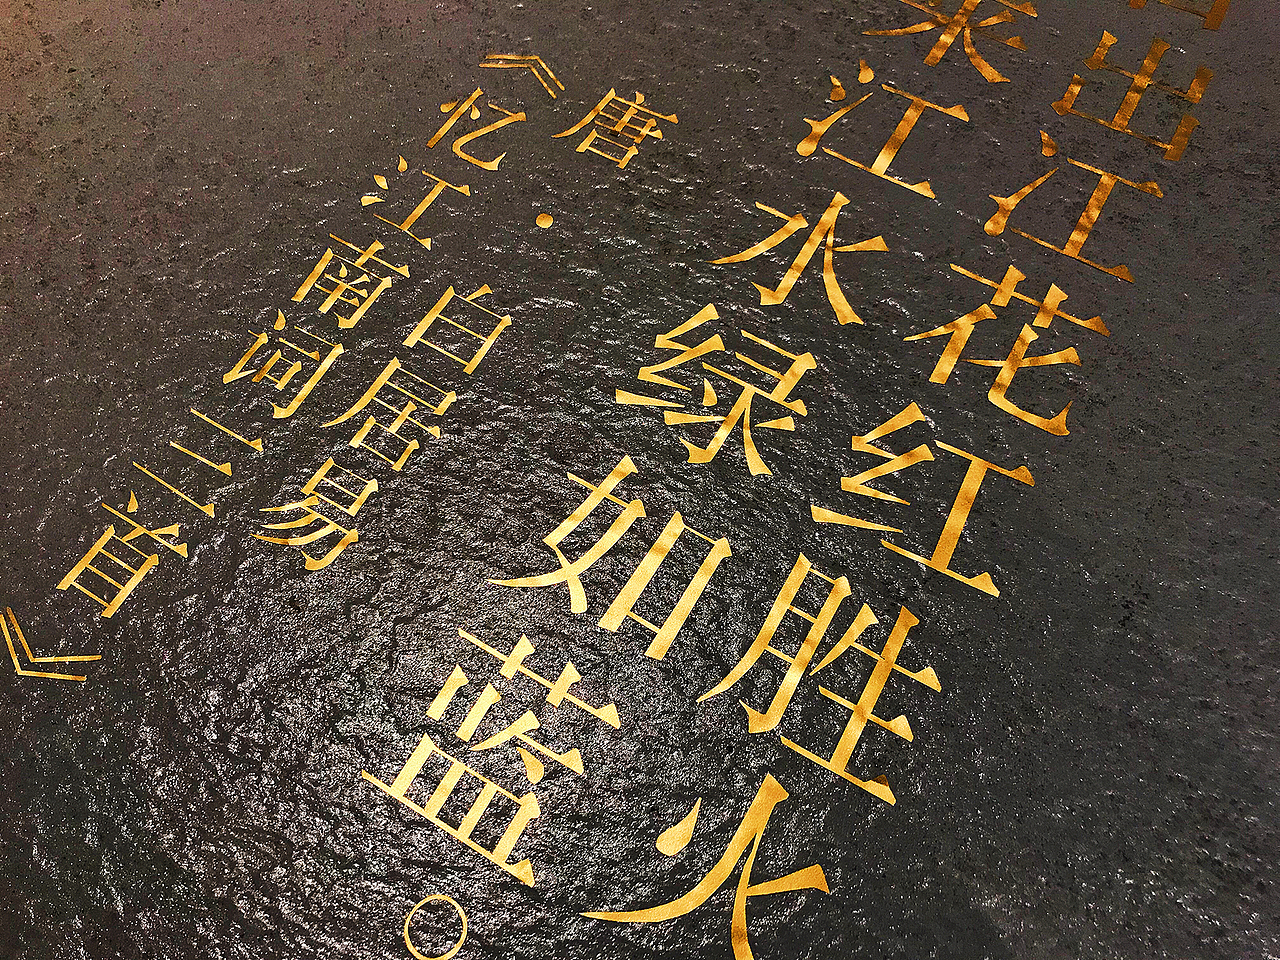 出江花红胜火
来江水绿如蓝。
唐·白居易
《忆江南词三首》